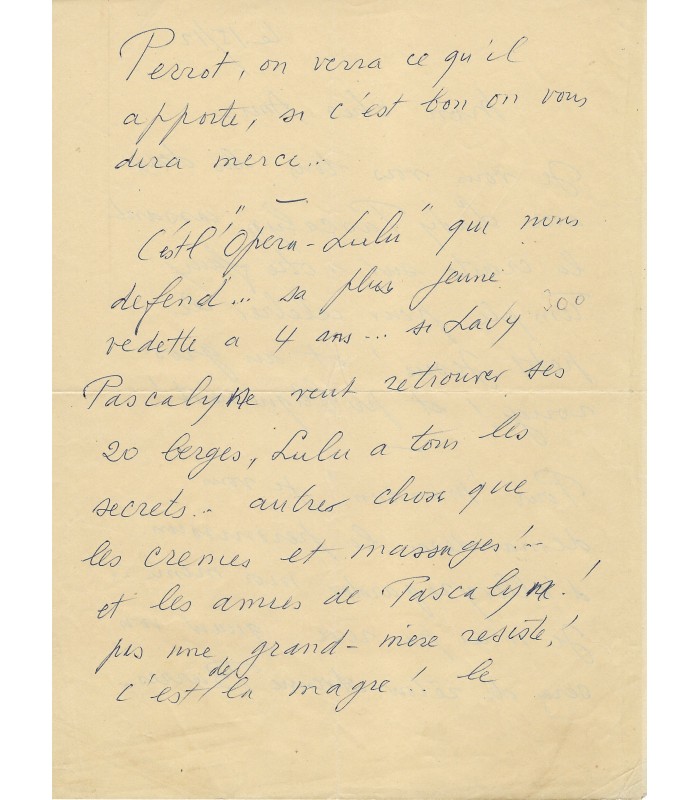 Perrot, on verra ce qu'il
apporte, si c'est bon on vous
dira merci...
C'est l'"Opéra-Lulu" qui nous
defend... sa plus jeune
vedette a 4 ans... si Lady 300
Pascalyne veut retrouver ses
20 berges, Lulu a tous les
secrets.. autres chose que
les cremes et massages!..
et les amies de Pascalyne!
pas une grand-mère resiste!
c'est de la magie!. le